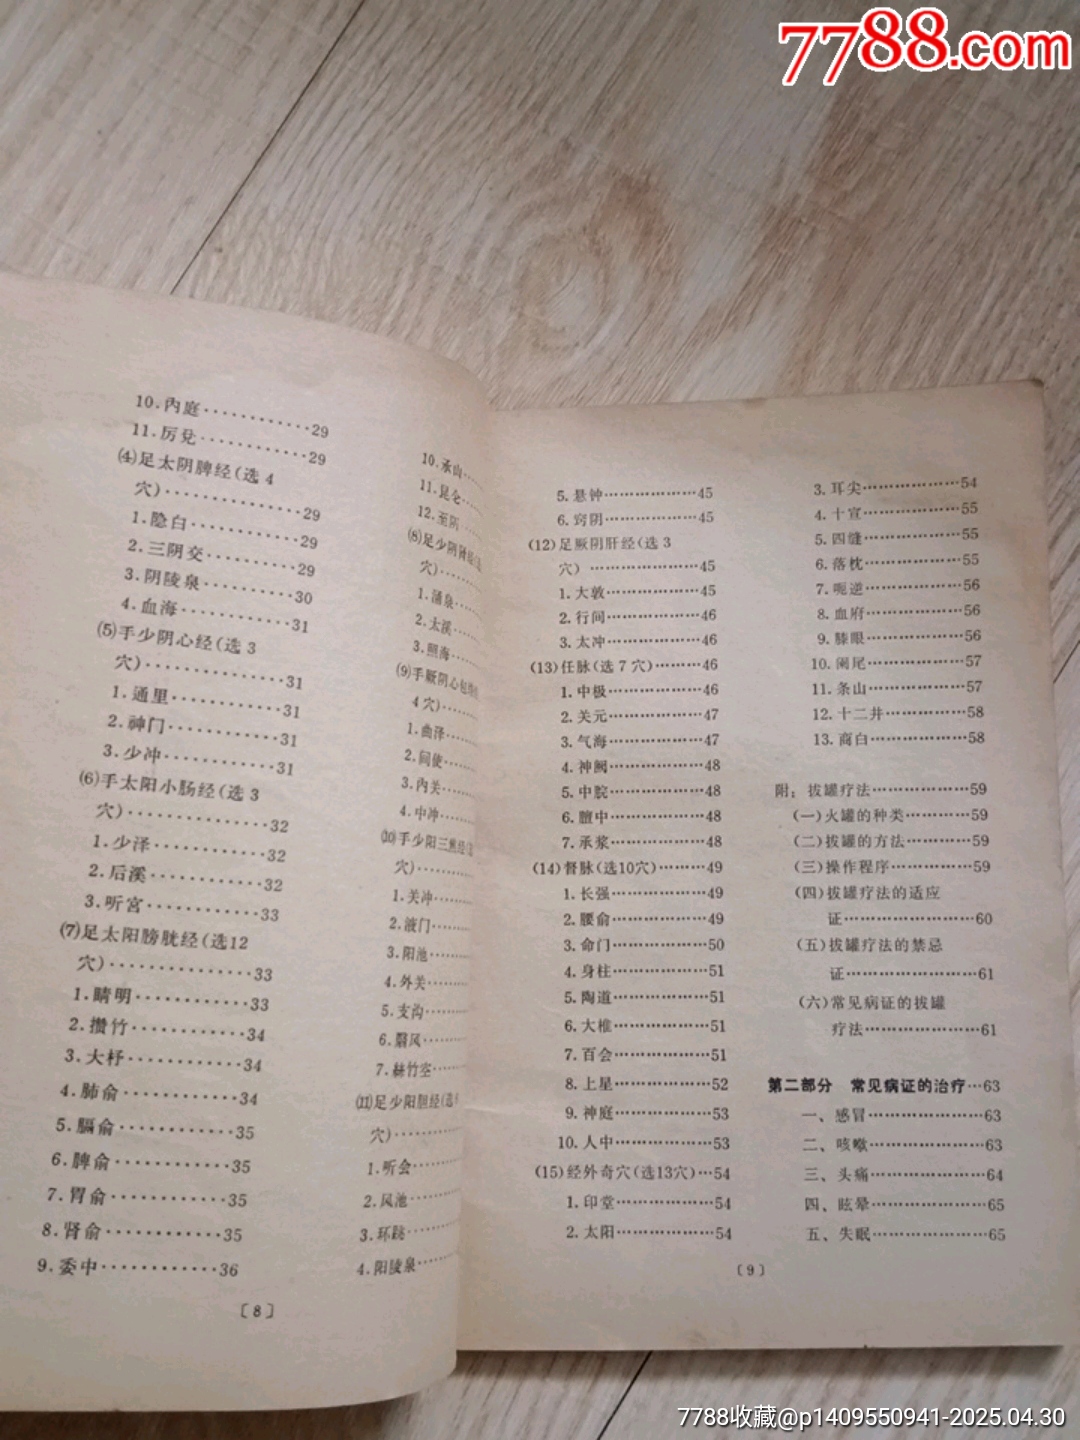 7788.com
10.内庭············29
11.厉兑············29
⑷足太阴脾经(选4
穴)··················29
1.隐白··············29
2.三阴交···········29
3.阴陵泉···········30
4.血海··············31
⑸手少阴心经(选3
穴)··················31
1.通里··············31
2.神门··············31
3.少冲··············31
⑹手太阳小肠经(选3
穴)··················32
1.少泽··············32
2.后溪··············32
3.听宫··············33
⑺足太阳膀胱经(选12
穴)··················33
1.睛明··············33
2.攒竹··············34
3.大杼··············34
4.肺俞··············34
5.膈俞··············35
6.脾俞··············35
7.胃俞··············35
8.肾俞··············35
9.委中··············36
〔8〕
10.承山····
11.昆仑····
12.至阴
⑻足少阴肾经
穴)····
1.涌泉····
2.太溪····
3.照海····
⑼手厥阴心包
4穴)····
1.曲泽····
2.间使····
3.内关····
4.中冲····
⑽手少阳三焦经(选
穴)····
1.关冲····
2.液门····
3.阳池····
4.外关····
5.支沟····
6.翳风····
7.丝竹空····
⑾足少阳胆经(选6
穴)····
1.听会····
2.风池····
3.环跳····
4.阳陵泉····
5.悬钟··················45
6.窍阴··················45
(12)足厥阴肝经(选3
穴)·····················45
1.大敦··················45
2.行间··················46
3.太冲··················46
(13)任脉(选7穴)·········46
1.中极··················46
2.关元··················47
3.气海··················47
4.神阙··················48
5.中脘··················48
6.膻中··················48
7.承浆··················48
(14)督脉(选10穴)·········49
1.长强··················49
2.腰俞··················49
3.命门··················50
4.身柱··················51
5.陶道··················51
6.大椎··················51
7.百会··················51
8.上星··················52
9.神庭··················53
10.人中··················53
(15)经外奇穴(选13穴)···54
1.印堂··················54
2.太阳··················54
3.耳尖··················54
4.十宣··················55
5.四缝··················55
6.落枕··················55
7.呃逆··················56
8.血府··················56
9.膝眼··················56
10.阑尾··················57
11.条山··················57
12.十二井···············58
13.商白··················58
附：拔罐疗法··················59
(一)火罐的种类············59
(二)拔罐的方法············59
(三)操作程序···············59
(四)拔罐疗法的适应
证························60
(五)拔罐疗法的禁忌
证························61
(六)常见病证的拔罐
疗法·····················61
第二部分 常见病证的治疗···63
一、感冒·····················63
二、咳嗽·····················63
三、头痛·····················64
四、眩晕·····················65
五、失眠·····················65
〔9〕
7788收藏@p1409550941-2025.04.30